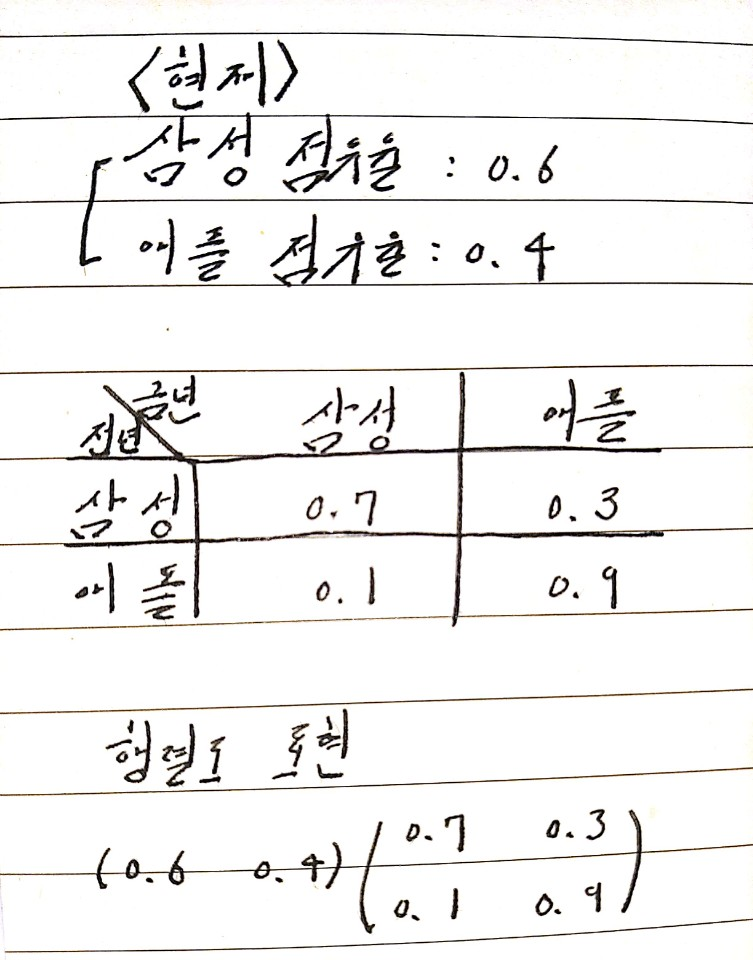 <현재>
삼성 점유율 : 0.6
애플 점유율 : 0.4
금년
전년 삼성 애플
삼성 0.7 0.3
애플 0.1 0.9
행렬로 표현
(0.6 0.4) (0.7 0.3
0.1 0.9)